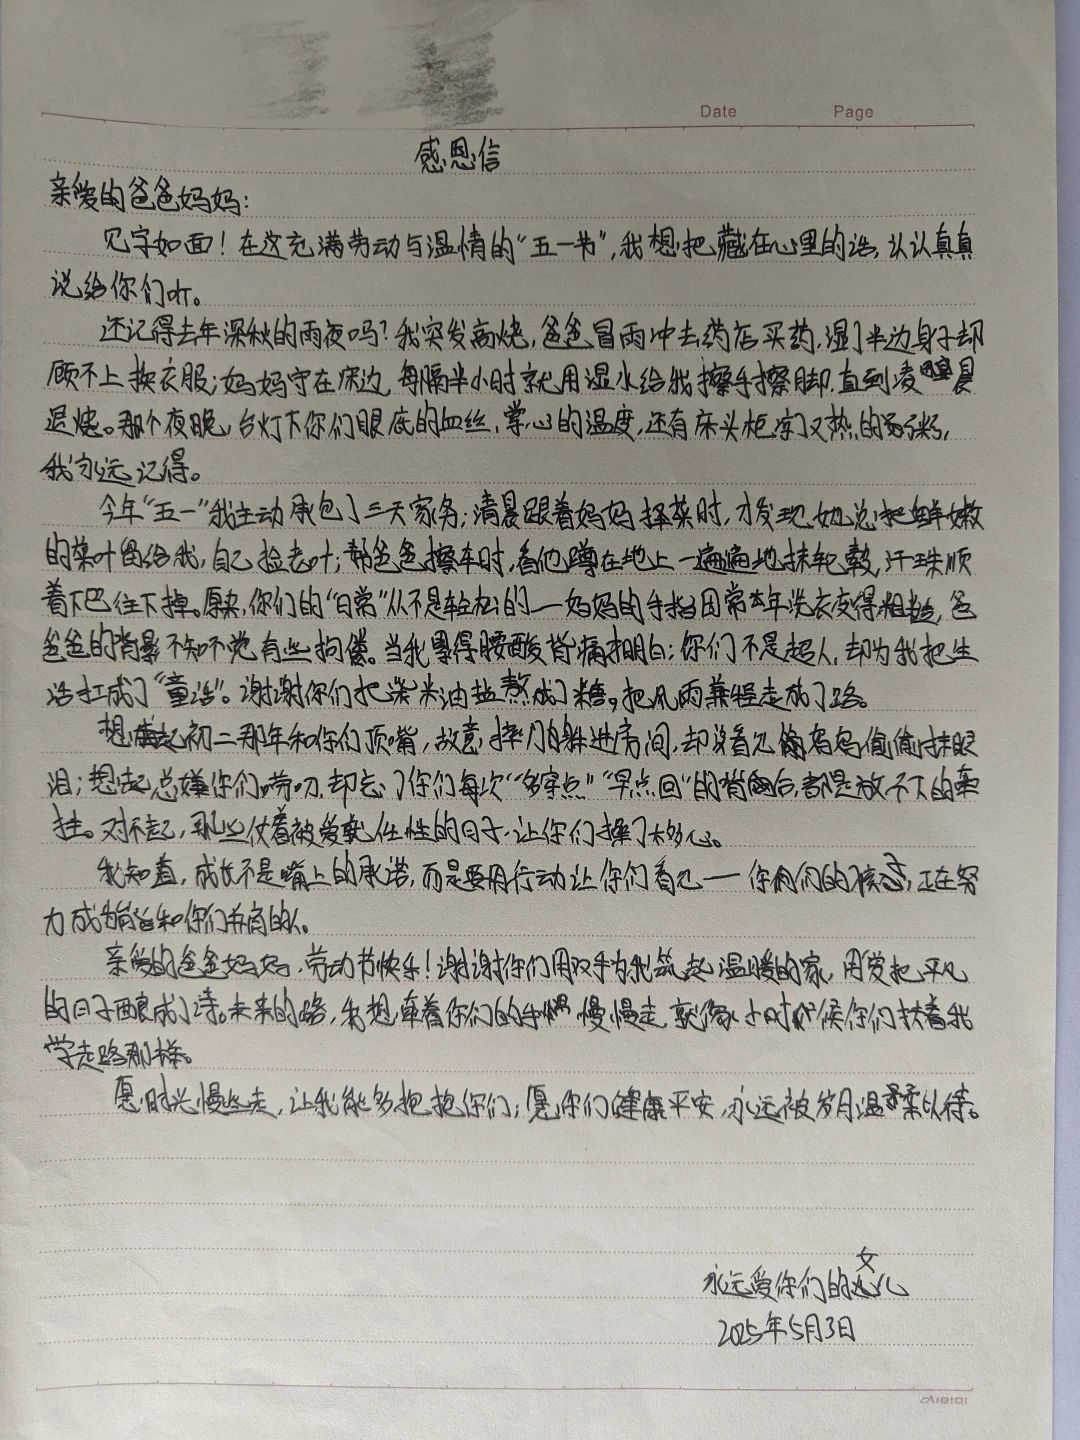 Date Page
感恩信
亲爱的爸爸妈妈:
见字如面!在这充满劳动与温情的“五一节”,我想把藏在心里的话,认认真真
说给你们听。
还记得去年深秋的雨夜吗?我突发高烧,爸爸冒雨冲去药店买药,湿了半边身子却
顾不上换衣服;妈妈守在床边,每隔半小时就用湿水给我擦手擦脚,直到凌晨
退烧。那个夜晚,台灯下你们眼底的血丝,掌心的温度,还有床头柜凉了又热的粥,
我永远记得。
今年“五一”我主动承包了三天家务;清晨跟着妈妈择菜时,才发现她总把鲜嫩
的菜叶留给我,自己捡老叶;帮爸爸擦车时,看他蹲在地上一遍遍地抹轮毂,汗珠顺
着下巴往下掉。原来,你们的“日常”从不是轻松的—妈妈的手指因常年洗衣变得粗糙,爸
爸爸的背影不知不觉有些拘偻。当我累得腰酸背痛才明白:你们不是超人,却为我把生
活扛成了“童话”。谢谢你们把柴米油盐熬成了糖,把风雨兼程走成了路。
想起初二那年和你们顶嘴,故意摔门躲进房间,却没看见妈妈偷偷抹眼
泪;想起总嫌你们唠叨,却忘了你们每次“多穿点”“早点回”的背后,都是放不下的牵
挂。对不起,那些仗着被爱就任性的日子,让你们操了太多心。
我知道,成长不是嘴上的承诺,而是要用行动让你们看见—你们的孩子,正在努
力成为和你们并肩的人。
亲爱的爸爸妈妈,劳动节快乐!谢谢你们用双手为我筑起温暖的家,用爱把平凡
的日子酿成了诗。未来的路,我想牵着你们的手慢慢走,就像小时候你们扶着我
学走路那样。
愿时光慢些走,让我能多抱抱你们;愿你们健康平安,永远被岁月温柔以待。
永远爱你们的女儿
2025年5月3日